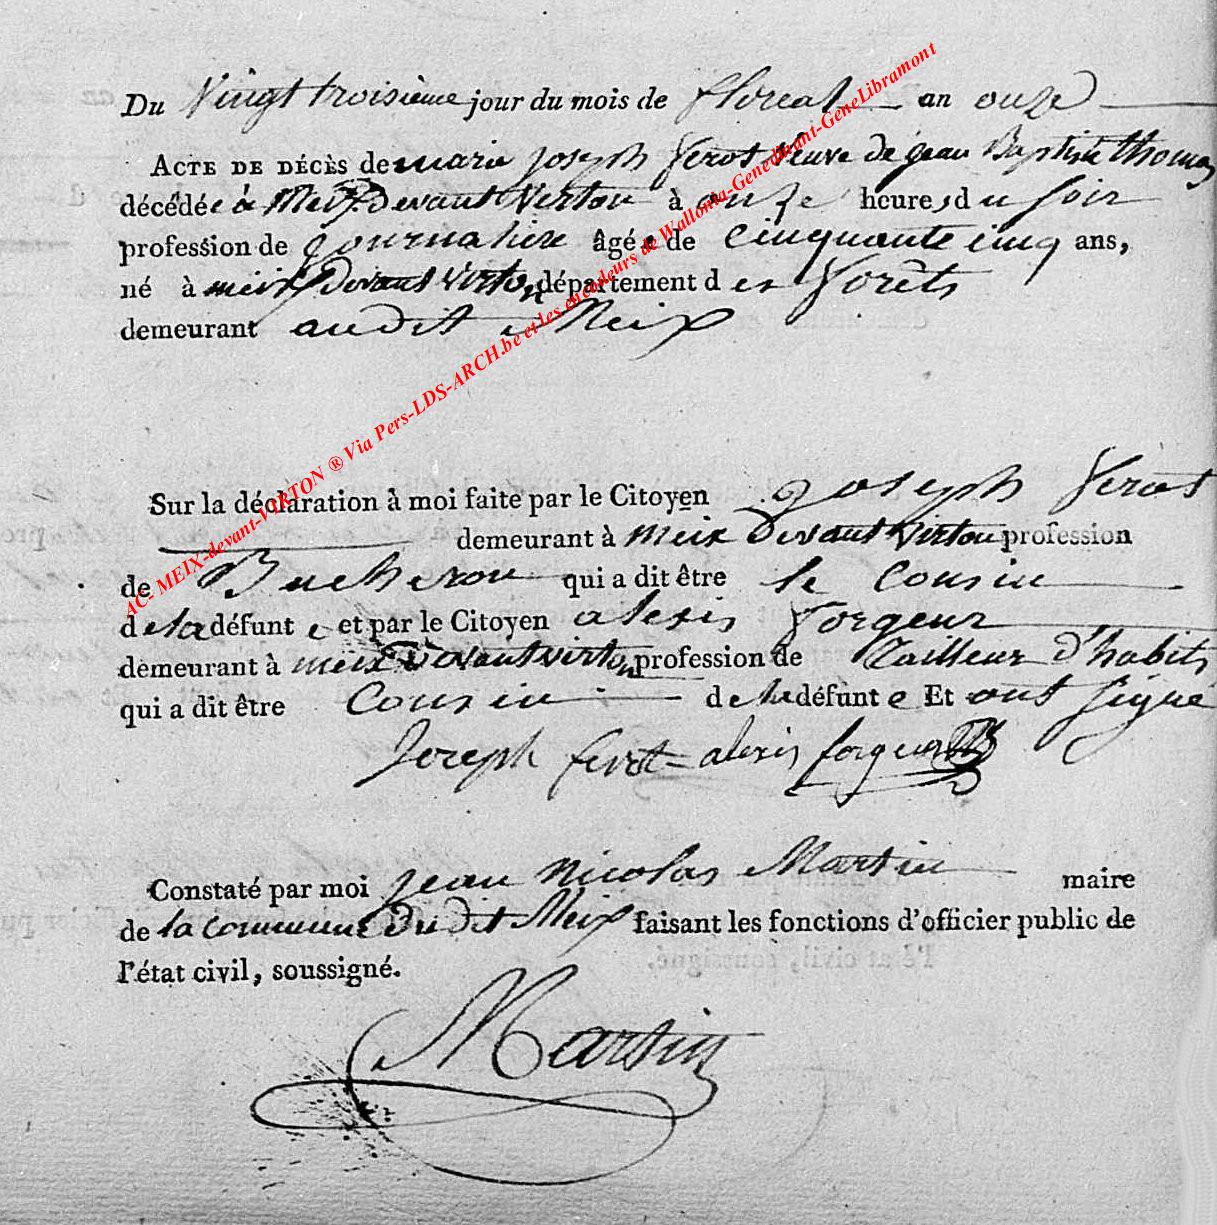 Du Vingt troisième jour du mois de floreal an onze
ACTE DE DÉCÈS de marie joseph ferot veuve de jean Baptiste thomas
décédée à Meix Devant Virton à onze heures du soir
profession de journalière âgée de cinquante cinq ans,
né à meix Devant virton département des forêts
demeurant audit Meix
Sur la déclaration à moi faite par le Citoyen joseph ferot
demeurant à meix Devant virton profession
de Bucheron qui a dit être le cousin
de la défunte et par le Citoyen alexis forgeur
demeurant à meix Devant virton profession de tailleur d'habits
qui a dit être cousin de la défunte Et ont signé
Joseph ferot alexis forgeur
Constaté par moi jean nicolas Martin maire
de la commune du dit Meix faisant les fonctions d'officier public de
l'état civil, soussigné.
Martin
AC- MEIX-devant-VIRTON ® Via Pers-LDS-ARCH.be et les encodeurs de Wallonia-Genedinant-GeneLibramont